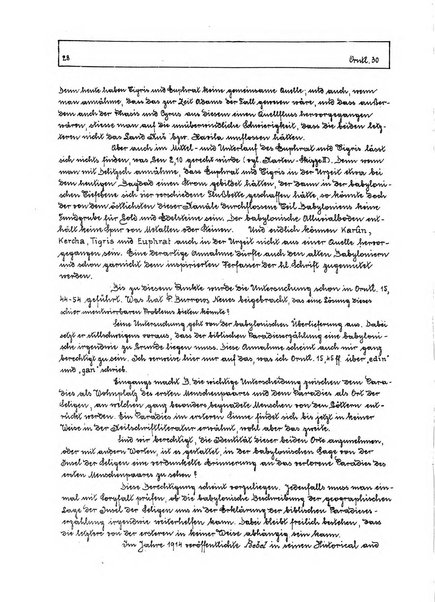 28 Orntl. 30
Denn heute haben Tigris und Euphrat keine gemeinsame Quelle, und auch, wenn
man annähme, dass das zur Zeit Adams der Fall gewesen wäre, und dass ausser-
dem auch der Phasis und Cyrus aus diesem einen Quellfluss hervorgegangen
wären, stiesse man auf die unüberwindliche Schwierigkeit, dass die beiden letz-
teren nicht das Land Kuš bezw. Havila umflossen hätten.
Aber auch im Mittel- und Unterlauf des Euphrat und Tigris lässt
sich nichts finden, was Gen 2,10 gerecht würde (vgl. Karten-Skizze II). Denn wenn
man mit Delitzsch annähme, dass Euphrat und Tigris in der Urzeit etwa bei
dem heutigen Bagdad einen Strom gebildet hätten, der dann in der babyloni-
schen Tiefebene sich in verschiedene Flussbette geschieden hätte, so könnte doch
der von dem östlichsten dieser Kanäle durchflossene Teil Babyloniens keine
Fundgrube für Gold und Edelsteine sein. Der babylonische Alluvialboden ent-
hält keine Spur von Metallen oder Steinen. Und endlich können Karûn,
Kercha, Tigris und Euphrat auch in der Urzeit nicht aus einer Quelle hervor-
gegangen sein. Eine derartige Annahme dürfte auch den alten Babyloniern
und schon garnicht dem inspirierten Verfasser der hl. Schrift zugemutet
werden.
Bis zu diesem Punkte wurde die Untersuchung schon in Orntl. 15,
44-54 geführt. Was hat P. Burrows Neues beigebracht, das eine Lösung dieses
schier unentwirrbaren Problems bieten könnte?
Seine Untersuchung geht von der babylonischen Überlieferung aus. Dabei
setzt er stillschweigend voraus, dass der biblischen Paradieserzählung eine babyloni-
sche irgendwie zu Grunde liegen muss. Diese Annahme scheint auch mir ganz
berechtigt zu sein. Ich verweise hier nur auf das, was ich Orntl. 15, 45 ff über „edin"
und „gan" schrieb.
Eingangs macht B. die wichtige Unterscheidung zwischen dem Para-
dies als Wohnplatz des ersten Menschenpaares und dem Paradies als Ort der
Seligen, an welchen ganz besonders begnadete Menschen von den Göttern ent-
rückt werden. Ein Paradies im ersteren Sinne findet sich bis jetzt in keiner
Weise in der Keilschriftliteratur erwähnt, wohl aber das zweite.
Sind wir berechtigt, die Identität dieser beiden Orte anzunehmen,
oder mit andern Worten, ist es gestattet, in der babylonischen Sage von der
Insel der Seligen eine verdunkelte Erinnerung an das verlorene Paradies des
ersten Menschenpaares zu sehen?
Diese Berechtigung scheint vorzuliegen. Jedenfalls muss man ein-
mal mit Sorgfalt prüfen, ob die babylonische Beschreibung der geographischen
Lage der Insel der Seligen uns in der Erklärung der biblischen Paradies-
erzählung irgendwie weiterhelfen kann. Dabei bleibt freilich bestehen, dass
die letztere von der ersteren in keiner Weise abhängig sein kann.
Im Jahre 1914 veröffentlichte Poebel in seinen Historical and